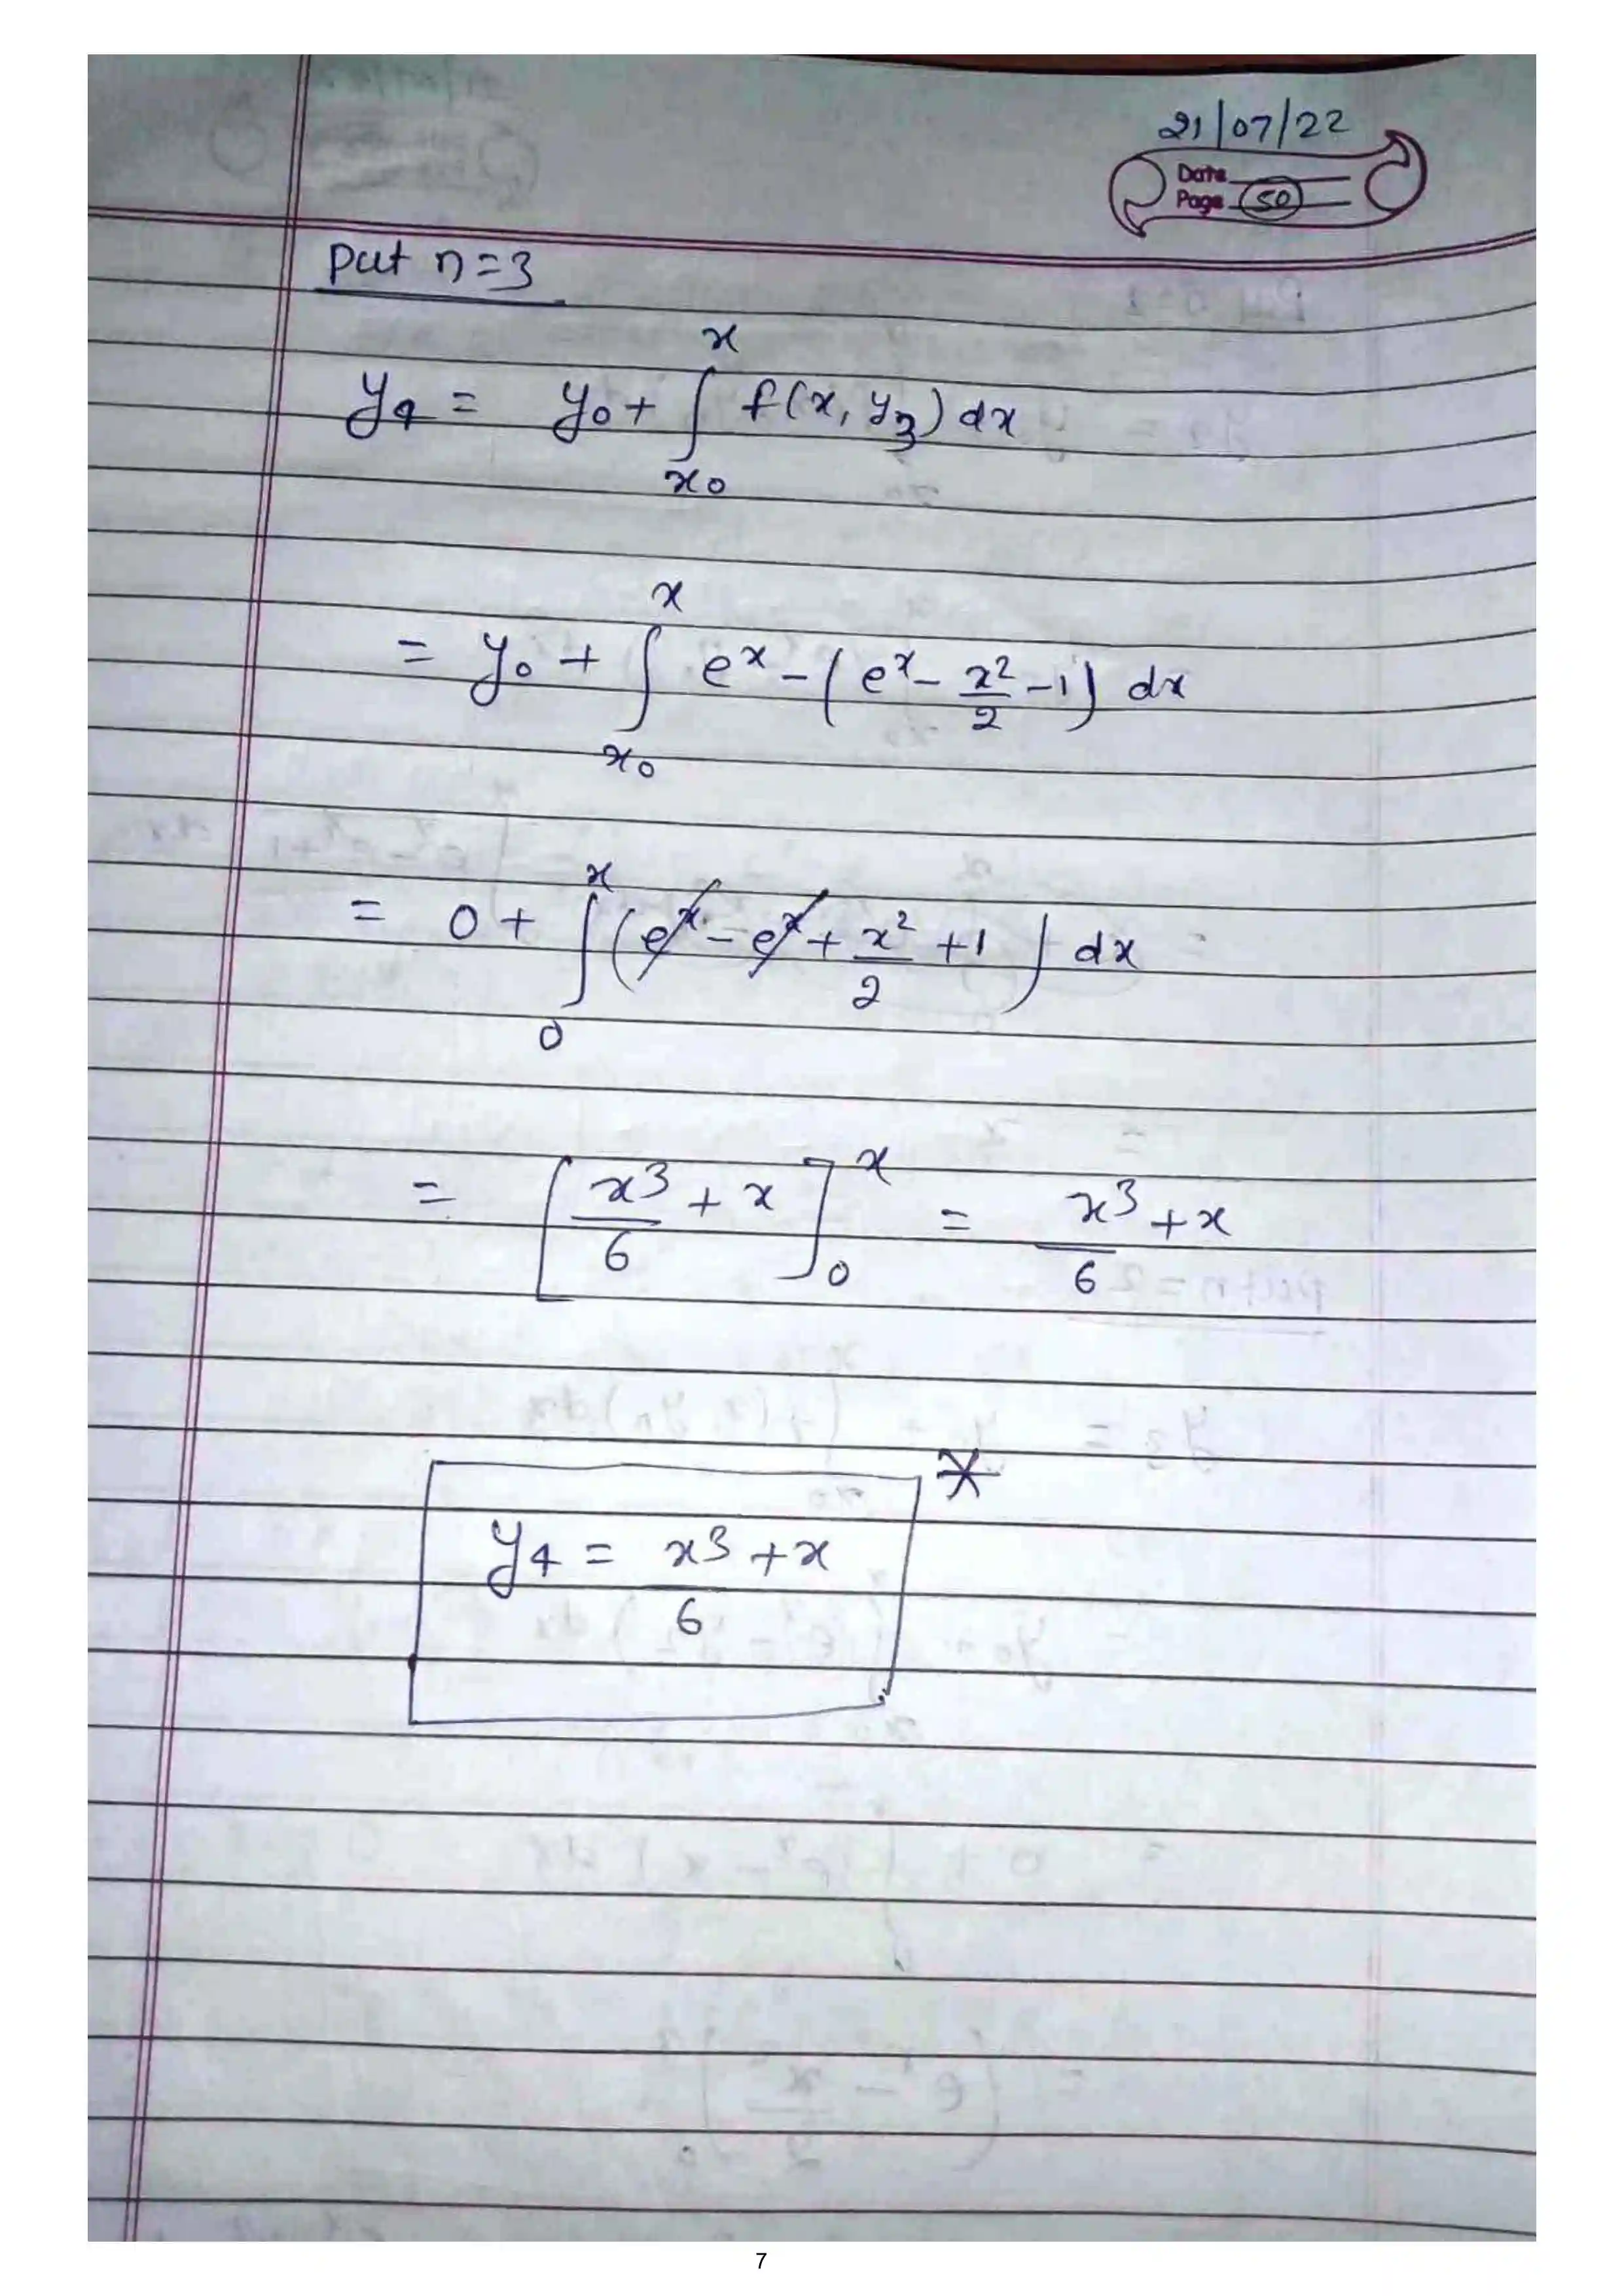 21/07/22
Date
Page 50
Put n=3
y₄ = y₀ + ∫_{x₀}^{x} f(x, y₃) dx
= y₀ + ∫_{x₀}^{x} eˣ - (eˣ - x²/2 - 1) dx
= 0 + ∫_{0}^{x} (eˣ - eˣ + x²/2 + 1) dx
= [x³/6 + x]_{0}^{x} = x³/6 + x
y₄ = x³/6 + x *
7